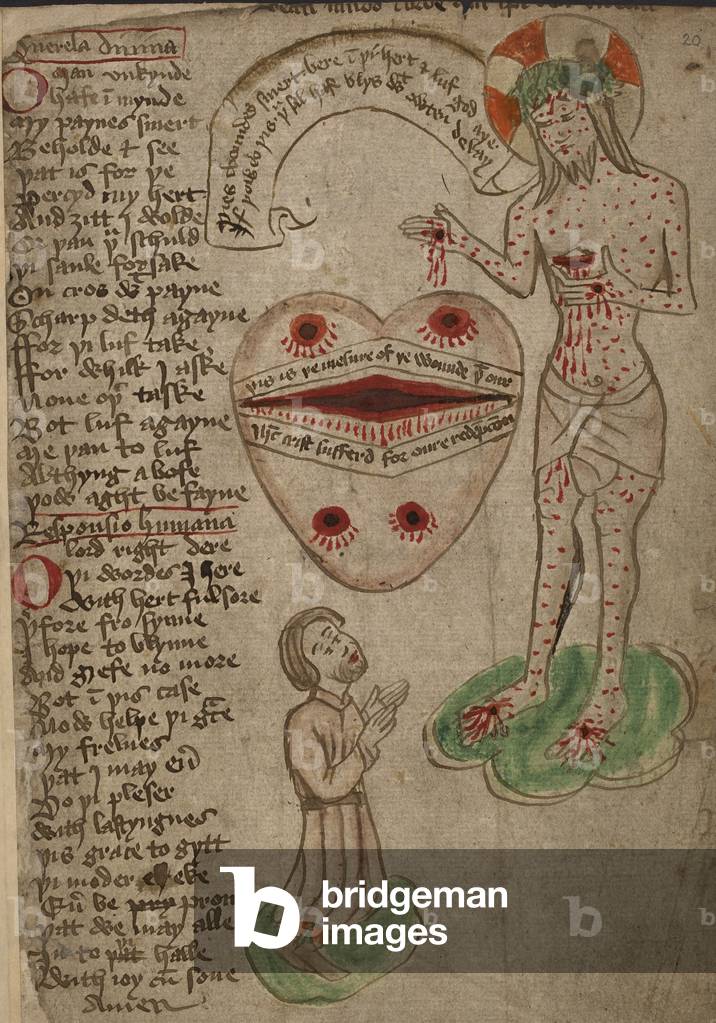 Querela diuina
O man vnkynde
hafe ī mynde
My paynes smert
Beholde & see
þat is for þe
Percyd my hert
And ȝitt I wolde
Or þan þu schuld
þi saule forsake
On cros wt payne
Scharp deth agayne
ffor þi luf take
ffor whilk I aske
None oþer taske
Bot luf agayne
Me þan to luf
Al thyng abofe
þow aght be fayne
Responsio humana
O lord right dere
þi wordes I here
With hert ful sore
þerfore fro synne
I hope to blynne
And grefe no more
Bot ī þis case
Now helpe þi grace
My frelnes
þat I may euer
Do þi pleser
With lastyngnes
þis grace to gytt
þi moder eke
Euer be pron
þat we may alle
In to þat halle
With ioy cū sone
Amen
þies woundes smert bere ī þi hert & luf god aye
If þow do þis þu sal haf blys wt owten delay
þis is þe mesure of þe wounde þt our
Ihc crist sufferd for oure redempcon
20
bridgeman
images